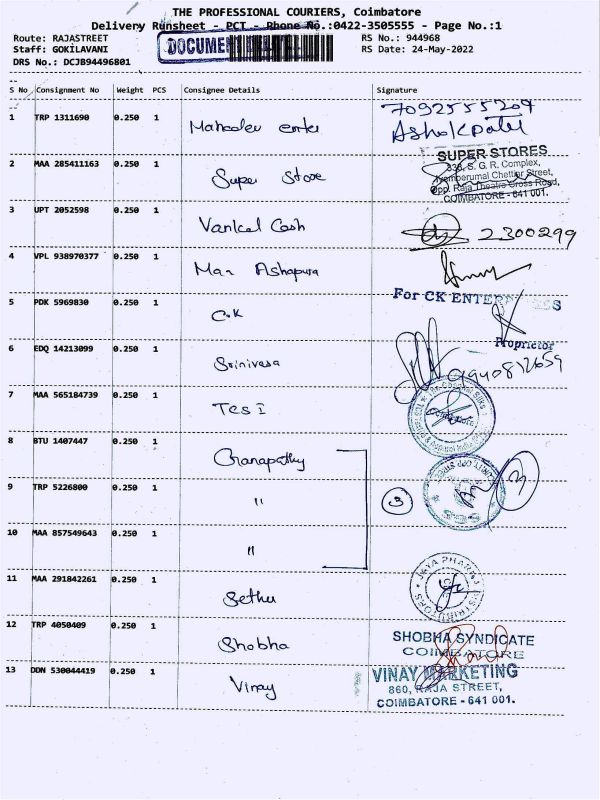 THE PROFESSIONAL COURIERS, Coimbatore
Delivery Runsheet - PCT - Phone No.:0422-3505555 - Page No.:1
Route: RAJASTREET
RS No.: 944968
Staff: GOKILAVANI
DOCUMENT
RS Date: 24-May-2022
DRS No.: DCJB94496801
S No Consignment No Weight PCS Consignee Details Signature
1 TRP 1311690 0.250 1 Mahadev enter 7092555209
Ashokpatel
2 MAA 285411163 0.250 1 Super Store SUPER STORES
S. G. R. Complex,
Chettiar Street,
Opp. Raja Theatre Cross Road,
COIMBATORE - 641 001.
3 UPT 2052598 0.250 1 Cash 2300299
4 VPL 938970377 0.250 1 Maa Ashapura
5 PDK 5969830 0.250 1 C.K For CK
Proprietor
6 EDQ 14213099 0.250 1 Srinivasa
7 MAA 565184739 0.250 1
8 BTU 1407447 0.250 1 Ganapathy
9 TRP 5226800 0.250 1 " 3 3
10 MAA 857549643 0.250 1 "
11 MAA 291842261 0.250 1 Sethu JAYA PHARMA DISTRIBUTORS
12 TRP 4050409 0.250 1 Shobha SHOBHA SYNDICATE
COIMBATORE
13 DDN 530044419 0.250 1 Vinay VINAY MARKETING
860, RAJA STREET,
COIMBATORE - 641 001.